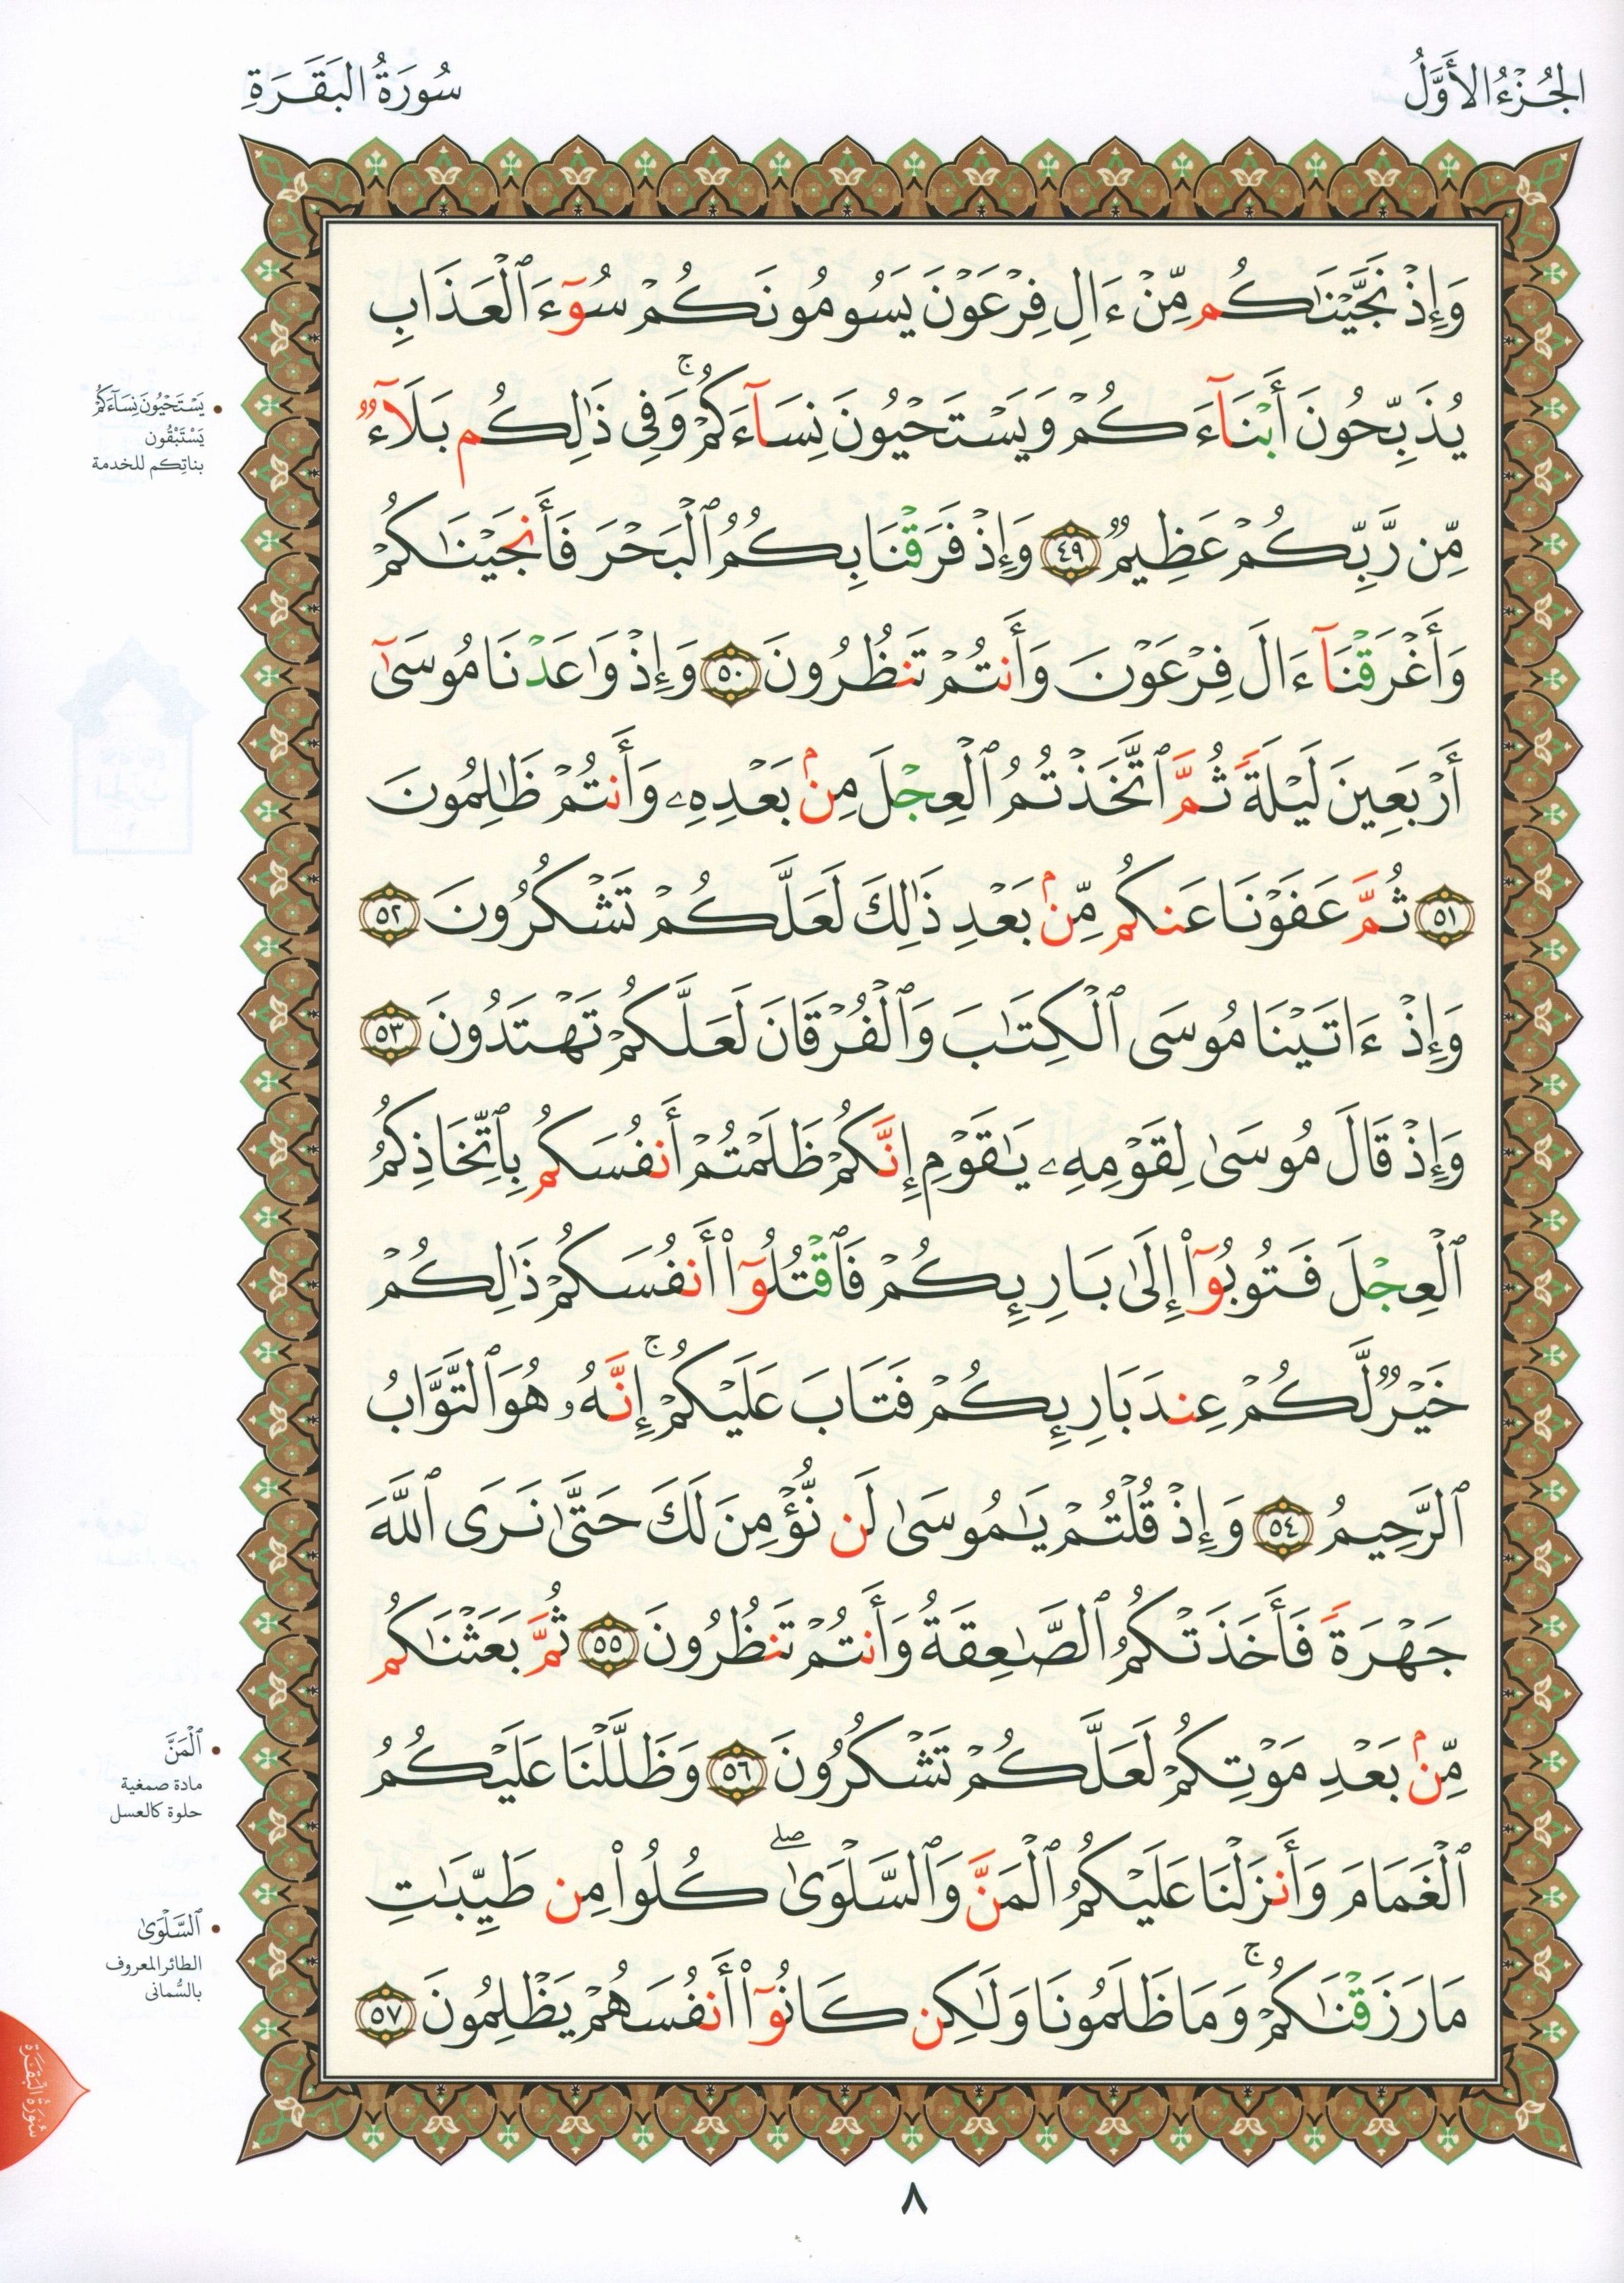 الجُزْءُ الأَوَّلُ
سُورَةُ البَقَرَةِ
وَإِذْ نَجَّيْنَٰكُم مِّنْ ءَالِ فِرْعَوْنَ يَسُومُونَكُمْ سُوٓءَ ٱلْعَذَابِ
يُذَبِّحُونَ أَبْنَآءَكُمْ وَيَسْتَحْيُونَ نِسَآءَكُمْ ۚ وَفِى ذَٰلِكُم بَلَآءٌ
مِّن رَّبِّكُمْ عَظِيمٌ ٤٩ وَإِذْ فَرَقْنَا بِكُمُ ٱلْبَحْرَ فَأَنجَيْنَٰكُمْ
وَأَغْرَقْنَآ ءَالَ فِرْعَوْنَ وَأَنتُمْ تَنظُرُونَ ٥٠ وَإِذْ وَٰعَدْنَا مُوسَىٰٓ
أَرْبَعِينَ لَيْلَةً ثُمَّ ٱتَّخَذْتُمُ ٱلْعِجْلَ مِنۢ بَعْدِهِۦ وَأَنتُمْ ظَٰلِمُونَ
٥١ ثُمَّ عَفَوْنَا عَنكُم مِّنۢ بَعْدِ ذَٰلِكَ لَعَلَّكُمْ تَشْكُرُونَ ٥٢
وَإِذْ ءَاتَيْنَا مُوسَى ٱلْكِتَٰبَ وَٱلْفُرْقَانَ لَعَلَّكُمْ تَهْتَدُونَ ٥٣
وَإِذْ قَالَ مُوسَىٰ لِقَوْمِهِۦ يَٰقَوْمِ إِنَّكُمْ ظَلَمْتُمْ أَنفُسَكُم بِٱتِّخَاذِكُمُ
ٱلْعِجْلَ فَتُوبُوٓا۟ إِلَىٰ بَارِئِكُمْ فَٱقْتُلُوٓا۟ أَنفُسَكُمْ ذَٰلِكُمْ
خَيْرٌ لَّكُمْ عِندَ بَارِئِكُمْ فَتَابَ عَلَيْكُمْ ۚ إِنَّهُۥ هُوَ ٱلتَّوَّابُ
ٱلرَّحِيمُ ٥٤ وَإِذْ قُلْتُمْ يَٰمُوسَىٰ لَن نُّؤْمِنَ لَكَ حَتَّىٰ نَرَى ٱللَّهَ
جَهْرَةً فَأَخَذَتْكُمُ ٱلصَّٰعِقَةُ وَأَنتُمْ تَنظُرُونَ ٥٥ ثُمَّ بَعَثْنَٰكُم
مِّنۢ بَعْدِ مَوْتِكُمْ لَعَلَّكُمْ تَشْكُرُونَ ٥٦ وَظَلَّلْنَا عَلَيْكُمُ
ٱلْغَمَامَ وَأَنزَلْنَا عَلَيْكُمُ ٱلْمَنَّ وَٱلسَّلْوَىٰ ۖ كُلُوا۟ مِن طَيِّبَٰتِ
مَا رَزَقْنَٰكُمْ ۚ وَمَا ظَلَمُونَا وَلَٰكِن كَانُوٓا۟ أَنفُسَهُمْ يَظْلِمُونَ ٥٧
يَسْتَحْيُونَ نِسَآءَكُمْ
يَسْتَبْقُون
بناتِكم للخدمة
ٱلْمَنَّ
مادة صمغية
حلوة كالعسل
ٱلسَّلْوَىٰ
الطائر المعروف
بالسُّمانى
سُورَةُ البَقَرَة
٨